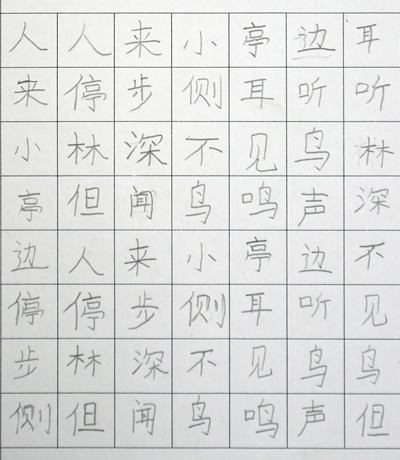 人人来小亭边耳
来停步侧耳听听
小林深不见鸟林
亭但闻鸟鸣声深
边人来小亭边不
停停步侧耳听见
步林深不见鸟鸟
侧但闻鸟鸣声但